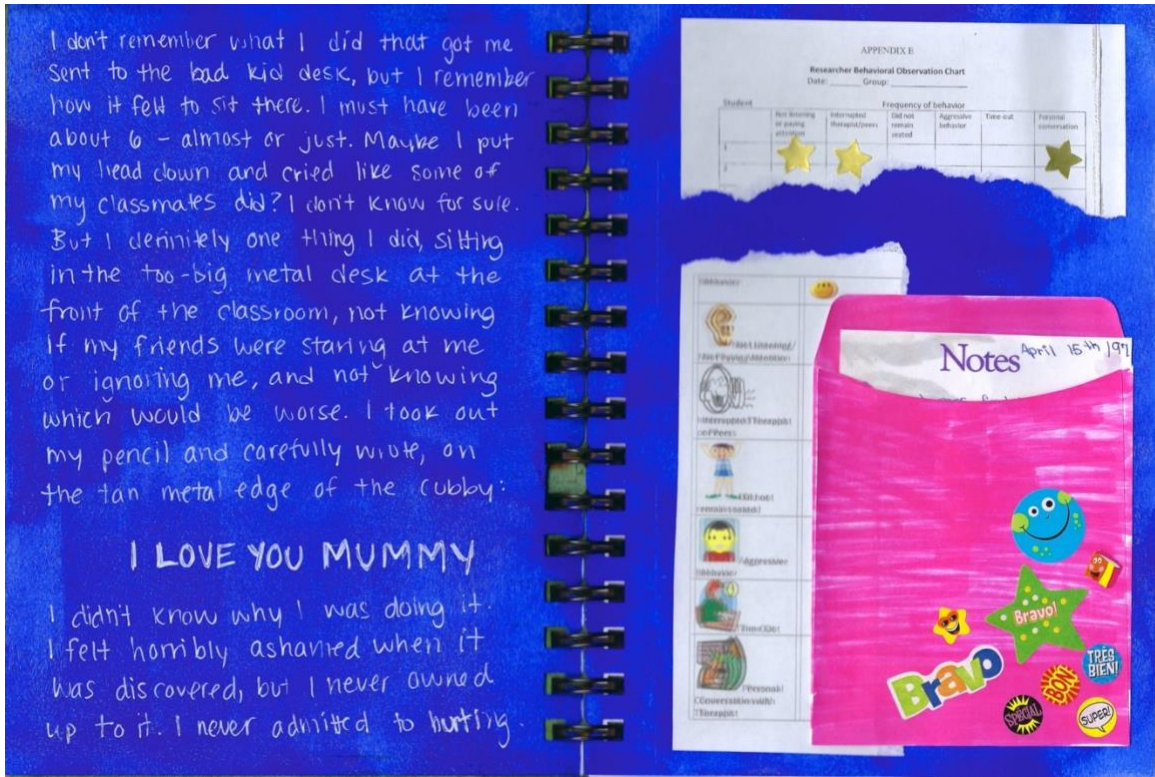 I don't remember what I did that got me
sent to the bad kid desk, but I remember
how it felt to sit there. I must have been
about 6 – almost or just. Maybe I put
my head down and cried like some of
my classmates did? I don't know for sure.
But I definitely one thing I did, sitting
in the too-big metal desk at the
front of the classroom, not knowing
if my friends were staring at me
or ignoring me, and not knowing
which would be worse. I took out
my pencil and carefully wrote, on
the tan metal edge of the cubby:
I LOVE YOU MUMMY
I didn't know why I was doing it.
I felt horribly ashamed when it
was discovered, but I never owned
up to it. I never admitted to hurting.
APPENDIX B
Researcher Behavioral Observation Chart
Date: Group:
Student Frequency of behavior
Not listening or paying attention
Interrupted therapist/peers
Did not remain seated
Aggressive behavior
Time out
Personal conversation
Notes April 15th /97
Bravo!
Bravo
TRÈS BIEN!
BON
SPECIAL
SUPER!